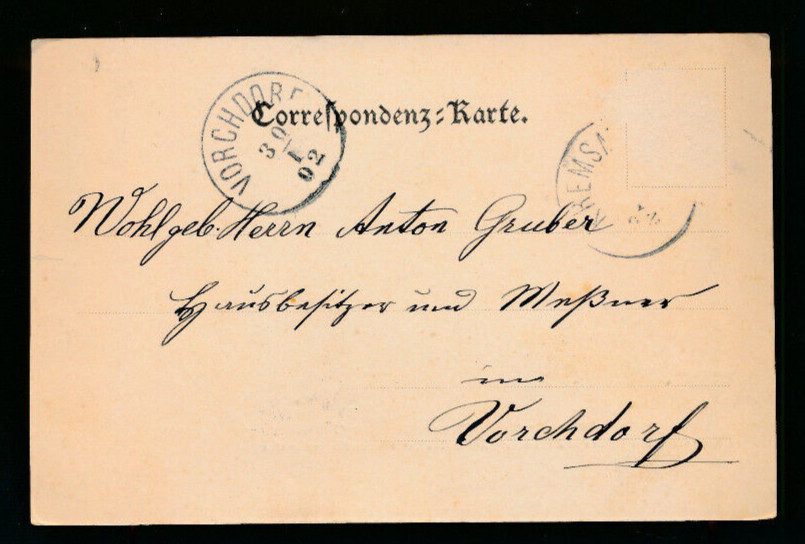 Correspondenz-Karte.
VORCHDORF
30
1
02
KREMSM
Wohlgeb. Herrn Anton Gruber
Hausbesitzer und Meßner
in
Vorchdorf